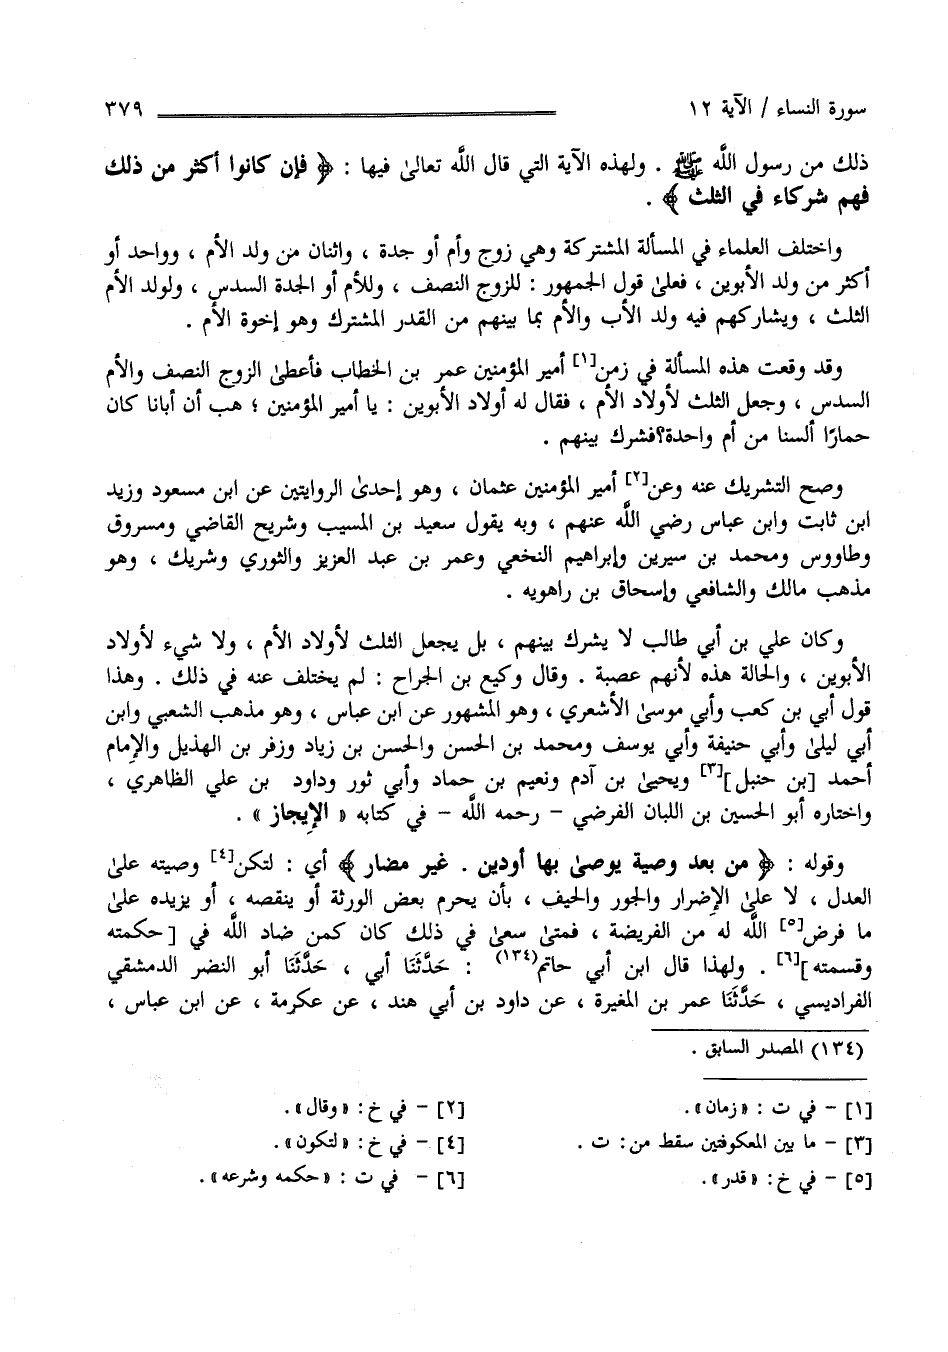 سورة النساء / الآية ١٢ ٣٧٩
ذلك من رسول اللَّه ﷺ . ولهذه الآية التي قال اللَّه تعالىٰ فيها : ﴿ فإن كانوا أكثر من ذلك
فهم شركاء في الثلث ﴾ .
واختلف العلماء في المسألة المشتركة وهي زوج وأم أو جدة ، واثنان من ولد الأم ، وواحد أو
أكثر من ولد الأبوين ، فعلىٰ قول الجمهور : للزوج النصف ، وللأم أو الجدة السدس ، ولولد الأم
الثلث ، ويشاركهم فيه ولد الأب والأم بما بينهم من القدر المشترك وهو إخوة الأم .
وقد وقعت هذه المسألة في زمن[١] أمير المؤمنين عمر بن الخطاب فأعطىٰ الزوج النصف والأم
السدس ، وجعل الثلث لأولاد الأم ، فقال له أولاد الأبوين : يا أمير المؤمنين ؛ هب أن أبانا كان
حمارًا ألسنا من أم واحدة؟فشرك بينهم .
وصح التشريك عنه وعن[٢] أمير المؤمنين عثمان ، وهو إحدىٰ الروايتين عن ابن مسعود وزيد
ابن ثابت وابن عباس رضي اللَّه عنهم ، وبه يقول سعيد بن المسيب وشريح القاضي ومسروق
وطاووس ومحمد بن سيرين وإبراهيم النخعي وعمر بن عبد العزيز والثوري وشريك ، وهو
مذهب مالك والشافعي وإسحاق بن راهويه .
وكان علي بن أبي طالب لا يشرك بينهم ، بل يجعل الثلث لأولاد الأم ، ولا شيء لأولاد
الأبوين ، والحالة هذه لأنهم عصبة . وقال وكيع بن الجراح : لم يختلف عنه في ذلك . وهذا
قول أبي بن كعب وأبي موسىٰ الأشعري ، وهو المشهور عن ابن عباس ، وهو مذهب الشعبي وابن
أبي ليلىٰ وأبي حنيفة وأبي يوسف ومحمد بن الحسن والحسن بن زياد وزفر بن الهذيل والإمام
أحمد [بن حنبل][٣] ويحيىٰ بن آدم ونعيم بن حماد وأبي ثور وداود بن علي الظاهري ،
واختاره أبو الحسين بن اللبان الفرضي – رحمه اللَّه – في كتابه « الإيجاز » .
وقوله : ﴿ من بعد وصية يوصىٰ بها أودين . غير مضار ﴾ أي : لتكن[٤] وصيته علىٰ
العدل ، لا علىٰ الإضرار والجور والحيف ، بأن يحرم بعض الورثة أو ينقصه ، أو يزيده علىٰ
ما فرض[٥] اللَّه له من الفريضة ، فمتىٰ سعىٰ في ذلك كان كمن ضاد اللَّه في [حكمته
وقسمته][٦] . ولهذا قال ابن أبي حاتم(١٣٤) : حَدَّثَنَا أبي ، حَدَّثَنَا أبو النضر الدمشقي
الفراديسي ، حَدَّثَنَا عمر بن المغيرة ، عن داود بن أبي هند ، عن عكرمة ، عن ابن عباس ،
(١٣٤) المصدر السابق .
[١] – في ت : «زمان». [٢] – في خ: «وقال».
[٣] – ما بين المعكوفتين سقط من: ت . [٤] – في خ: «لتكون».
[٥] – في خ: «قدر». [٦] – في ت : «حكمه وشرعه».